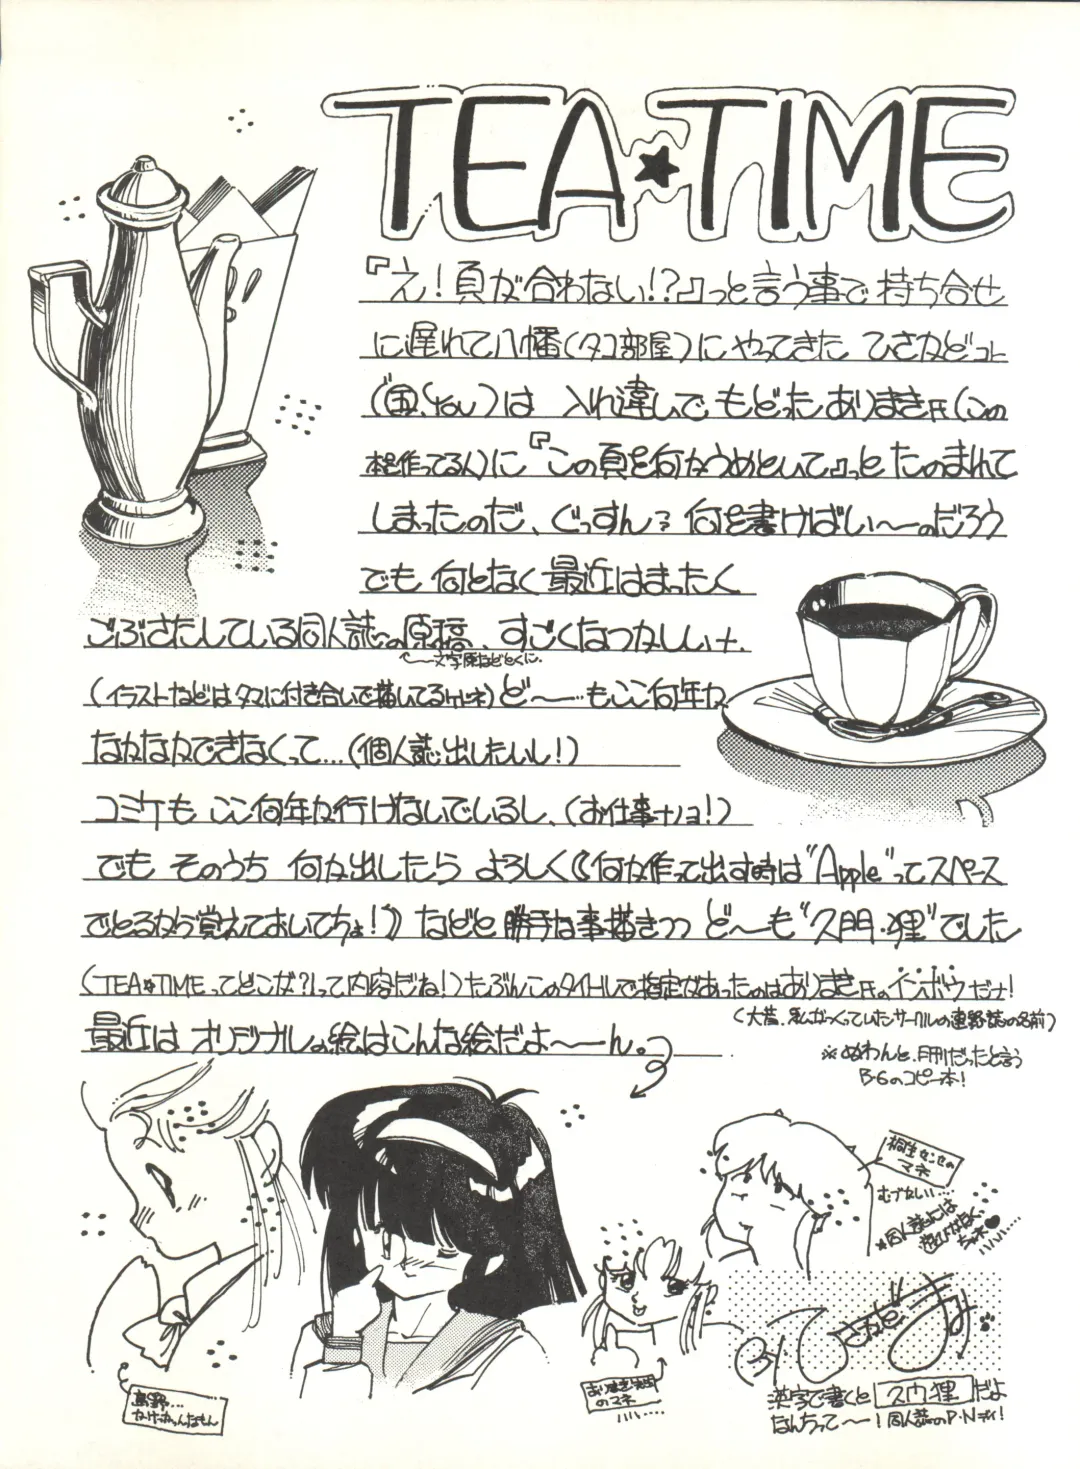 TEA★TIME
『え!頁が合わない!?』っと言う事で 持ち合せ
に遅れて八幡(タコ部屋)にやってきた ひさかどコト
は 入れ違いで もどった ありまき氏(この
本を作ってる人)に『この頁を何かうめといて』っと たのまれて
しまったのだ、ぐっすん? 何を書けばい〜〜のだろう
でも 何となく 最近はまったく
ごぶさたしている同人誌の原稿、すごくなつかしい
←〜〜文字原などとくに.
(イラストなどはタマに付き合いで描いてるけどネ) ど〜〜…もここ何年か
なかなかできなくって…(個人誌出したいし!)
コミケも ここ何年か行けないでいるし、(お仕事ナノョ!)
でも そのうち 何か出したら よろしく《何か作って出す時は"Apple"ってスペース
でとるから覚えておいてちょ!》などと 勝手な事描きつつ ど〜〜も"久門・狸"でした
(TEA★TIMEってどこが?!って内容だね!)たぶんこのタイトルで指定があったのはありまき氏のインボウだナ!
(大昔、私がつくっていたサークルの連野誌の名前)
最近は オリジナルの絵はこんな絵だよ〜〜〜ん。
※ぬわんと、月刊だったと言う
B-6のコピー本!
桐生センセの
マネ
むづかしい…
※同人誌には
遊びがなくちゃネ♥
ありまき
のマネ
By てさかどまみ
漢字で書くと 久門狸 だよ
なんちって〜〜! 同人誌のP・Nデイ!